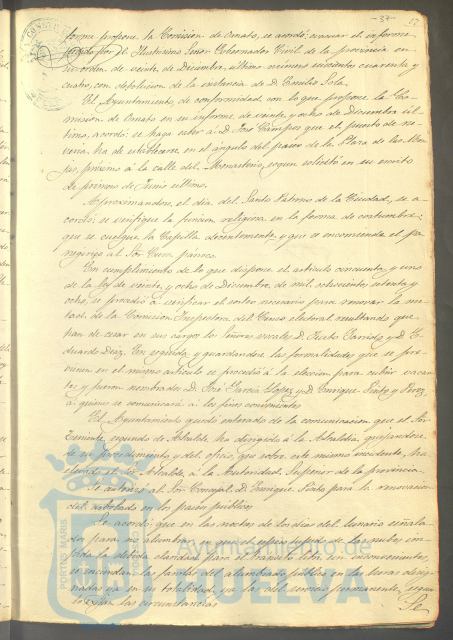 -37- 17
forma propone la Comisión de Ornato, se acordó; evacuar el informe
pedido por el Ilustrísimo Señor Gobernador Civil de la provincia en
su orden de veinte de Diciembre último número seiscientos cuarenta y
cuatro, con devolución de la instancia de D. Emilio Sola.
El Ayuntamiento, de conformidad con lo que propone la Co-
misión de Ornato en su informe de veinte y ocho de Diciembre úl-
timo, acordó: se haga saber á D. José Campos que el puesto de ne-
vería, ha de establecerse en el ángulo del paseo de la Plaza de las Mon-
jas, próximo á la calle del Monasterio, según solicitó en su escrito
de primero de Junio último.
Aproximándose el día del Santo Patrono de la Ciudad, se a-
cordó: se verifique la función religiosa en la forma de costumbre;
que se cuelgue la Capilla decentemente y que se encomiende el pa-
negírico al Sor. Cura párroco.
En cumplimiento de lo que dispone el artículo cincuenta y uno
de la ley de veinte y ocho de Diciembre de mil ochocientos setenta y
ocho, se procedió á verificar el sorteo necesario para renovar la mi-
tad de la Comisión Inspectora del Censo electoral, resultando que
han de cesar en sus cargos los Señores vocales D. Justo Garrido y D. E-
duardo Diaz. En seguida y guardándose las formalidades que se pre-
vienen en el mismo artículo se procedió á la elección para cubrir vacan-
tes y fueron nombrados D. José García López y D. Enrique Pinto y Pérez,
á quienes se comunicará á los fines consiguientes
El Ayuntamiento quedó enterado de la comunicación que el Sor.
Teniente segundo de Alcalde ha dirigido á la Alcaldía, quejándose
de su procedimiento y del oficio, que sobre este mismo incidente, ha
elevado el Sor. Alcalde á la Autoridad Superior de la provincia.
Se autorizó al Sor. Concejal D. Enrique Pinto para la renovación
del arbolado en los paseos públicos.
Se acordó: que en las noches de los días del lunario señala-
dos para no alumbrar en que el espeso tupido de las nubes im-
pida la debida claridad para el tránsito sin inconvenientes,
se enciendan las farolas del alumbrado público en las horas desig-
nadas ya en su totalidad, ya las del servicio permanente, según
lo exijan las circunstancias
Se
Ayuntamiento de
HUELVA
PORTUS MARIS